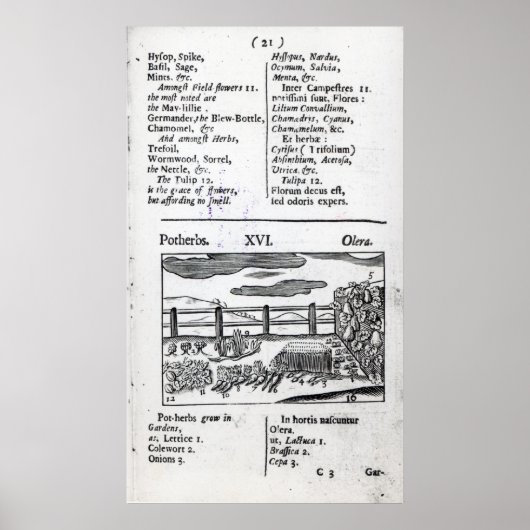 ( 21 )
Hyſop, Spike,
Baſil, Sage,
Mints, &c.
Amongſt Field flowers 11.
the moſt noted are
the May-lillie.
Germander, the Blew-Bottle,
Chamomel, &c
And amongst Herbs,
Trefoil,
Wormwood, Sorrel,
the Nettle, &c.
The Tulip 12.
is the grace of flowers,
but affording no ſmell.
Hyſſopus, Nardus,
Ocymum, Salvia,
Menta, &c.
Inter Campeſtres 11.
notiſſimi ſunt, Flores :
Lilium Convallium,
Chamædrys, Cyanus,
Chamæmelum, &c.
Et herbæ :
Cytiſus ( Trifolium)
Abſinthium, Acetoſa,
Urtica, &c.
Tulipa 12.
Florum decus eſt,
ſed odoris expers.
Potherbs. XVI. Olera.
5
9
11
10
8
7
6
4
3
12
16
Pot-herbs grow in
Gardens,
as, Lettice 1.
Colewort 2.
Onions 3.
In hortis naſcuntur
Olera.
ut, Lactuca 1.
Braſſica 2.
Cepa 3.
C 3 Gar-